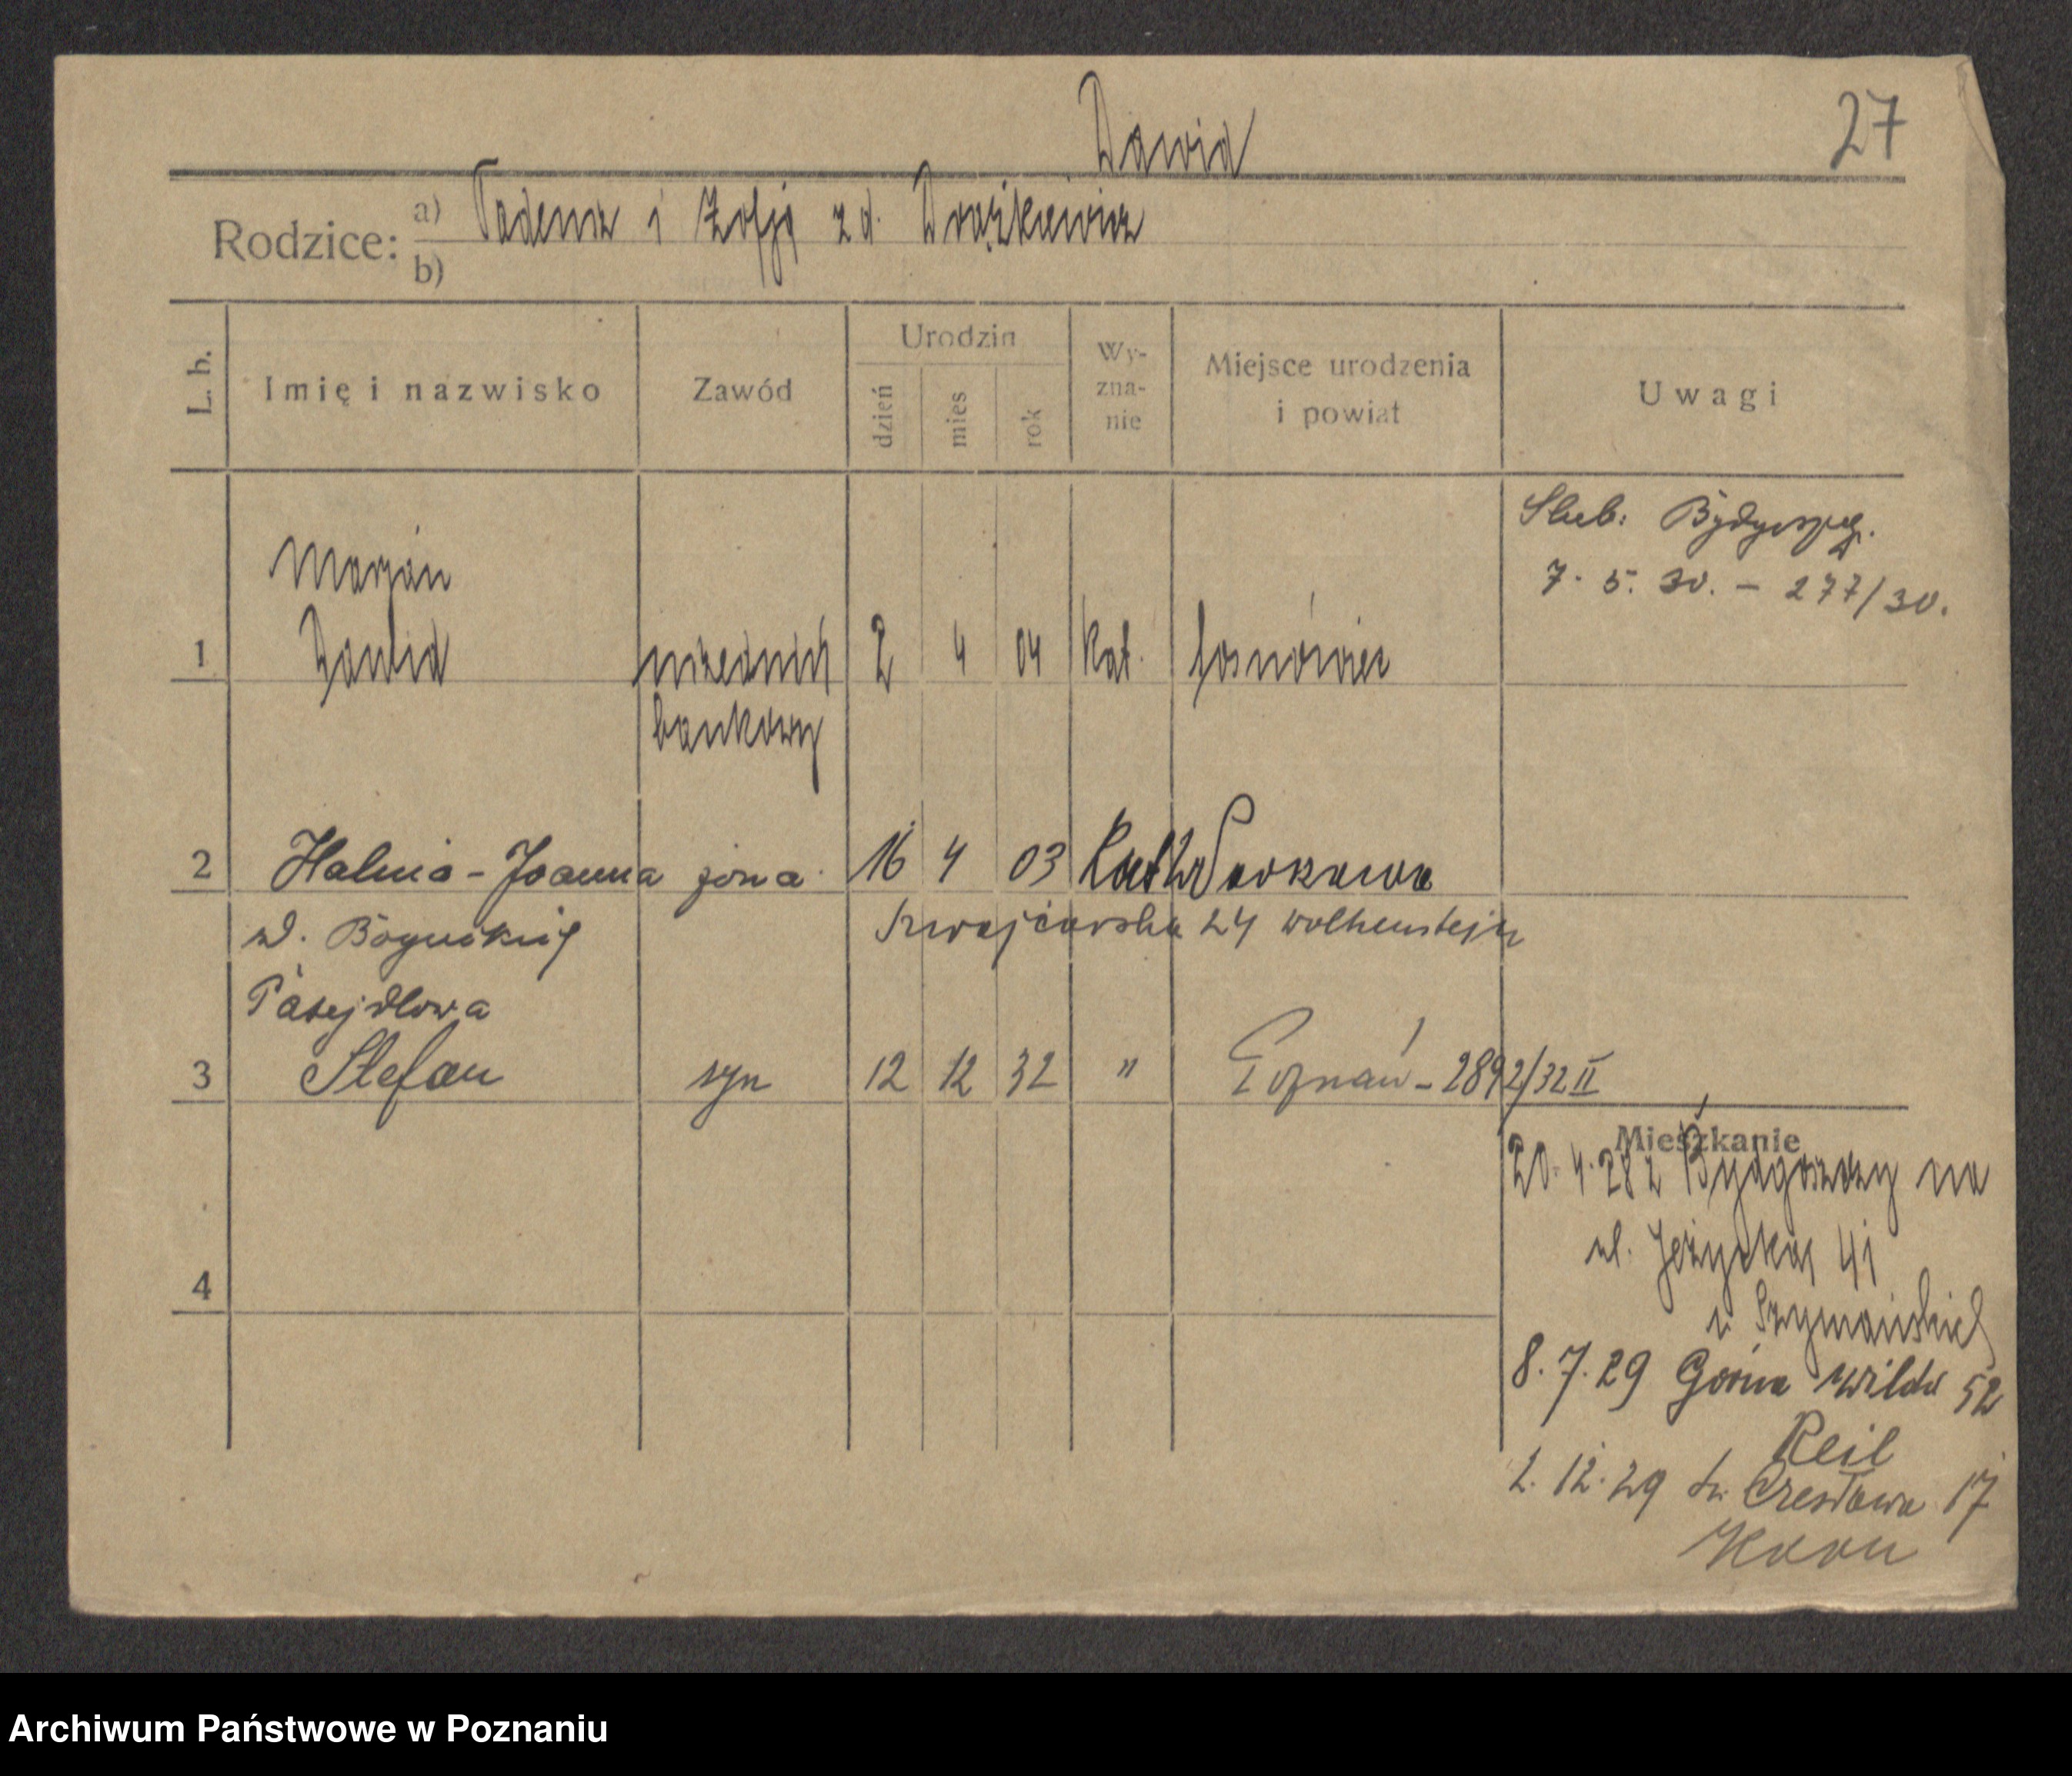 Dawid
27
Rodzice: a) Tadeusz i Zofja z d. Drążkiewicz
b)
L. b.
Imię i nazwisko
Zawód
Urodzin
dzień
mies
rok
Wy-
zna-
nie
Miejsce urodzenia
i powiat
Uwagi
Ślub: Bydgoszcz.
7. 5. 30. – 277/30.
Marjan
1 Dawid urzędnik 2 4 04 kat. Sosnowiec
bankowy
2 Halina - Joanna żona 16 4 03
d. Boguckich
Szwajcarska 24
3 Stefan syn 12 12 32 " Poznań - 2892/32 II
Mieszkanie
20. 4. 28 z Bydgoszczy na
ul. Jeżycką 41
u Szymańskich
8. 7. 29 Górna Wilda 52
Reil
2. 12. 29 św. Czesława 17
4
Archiwum Państwowe w Poznaniu